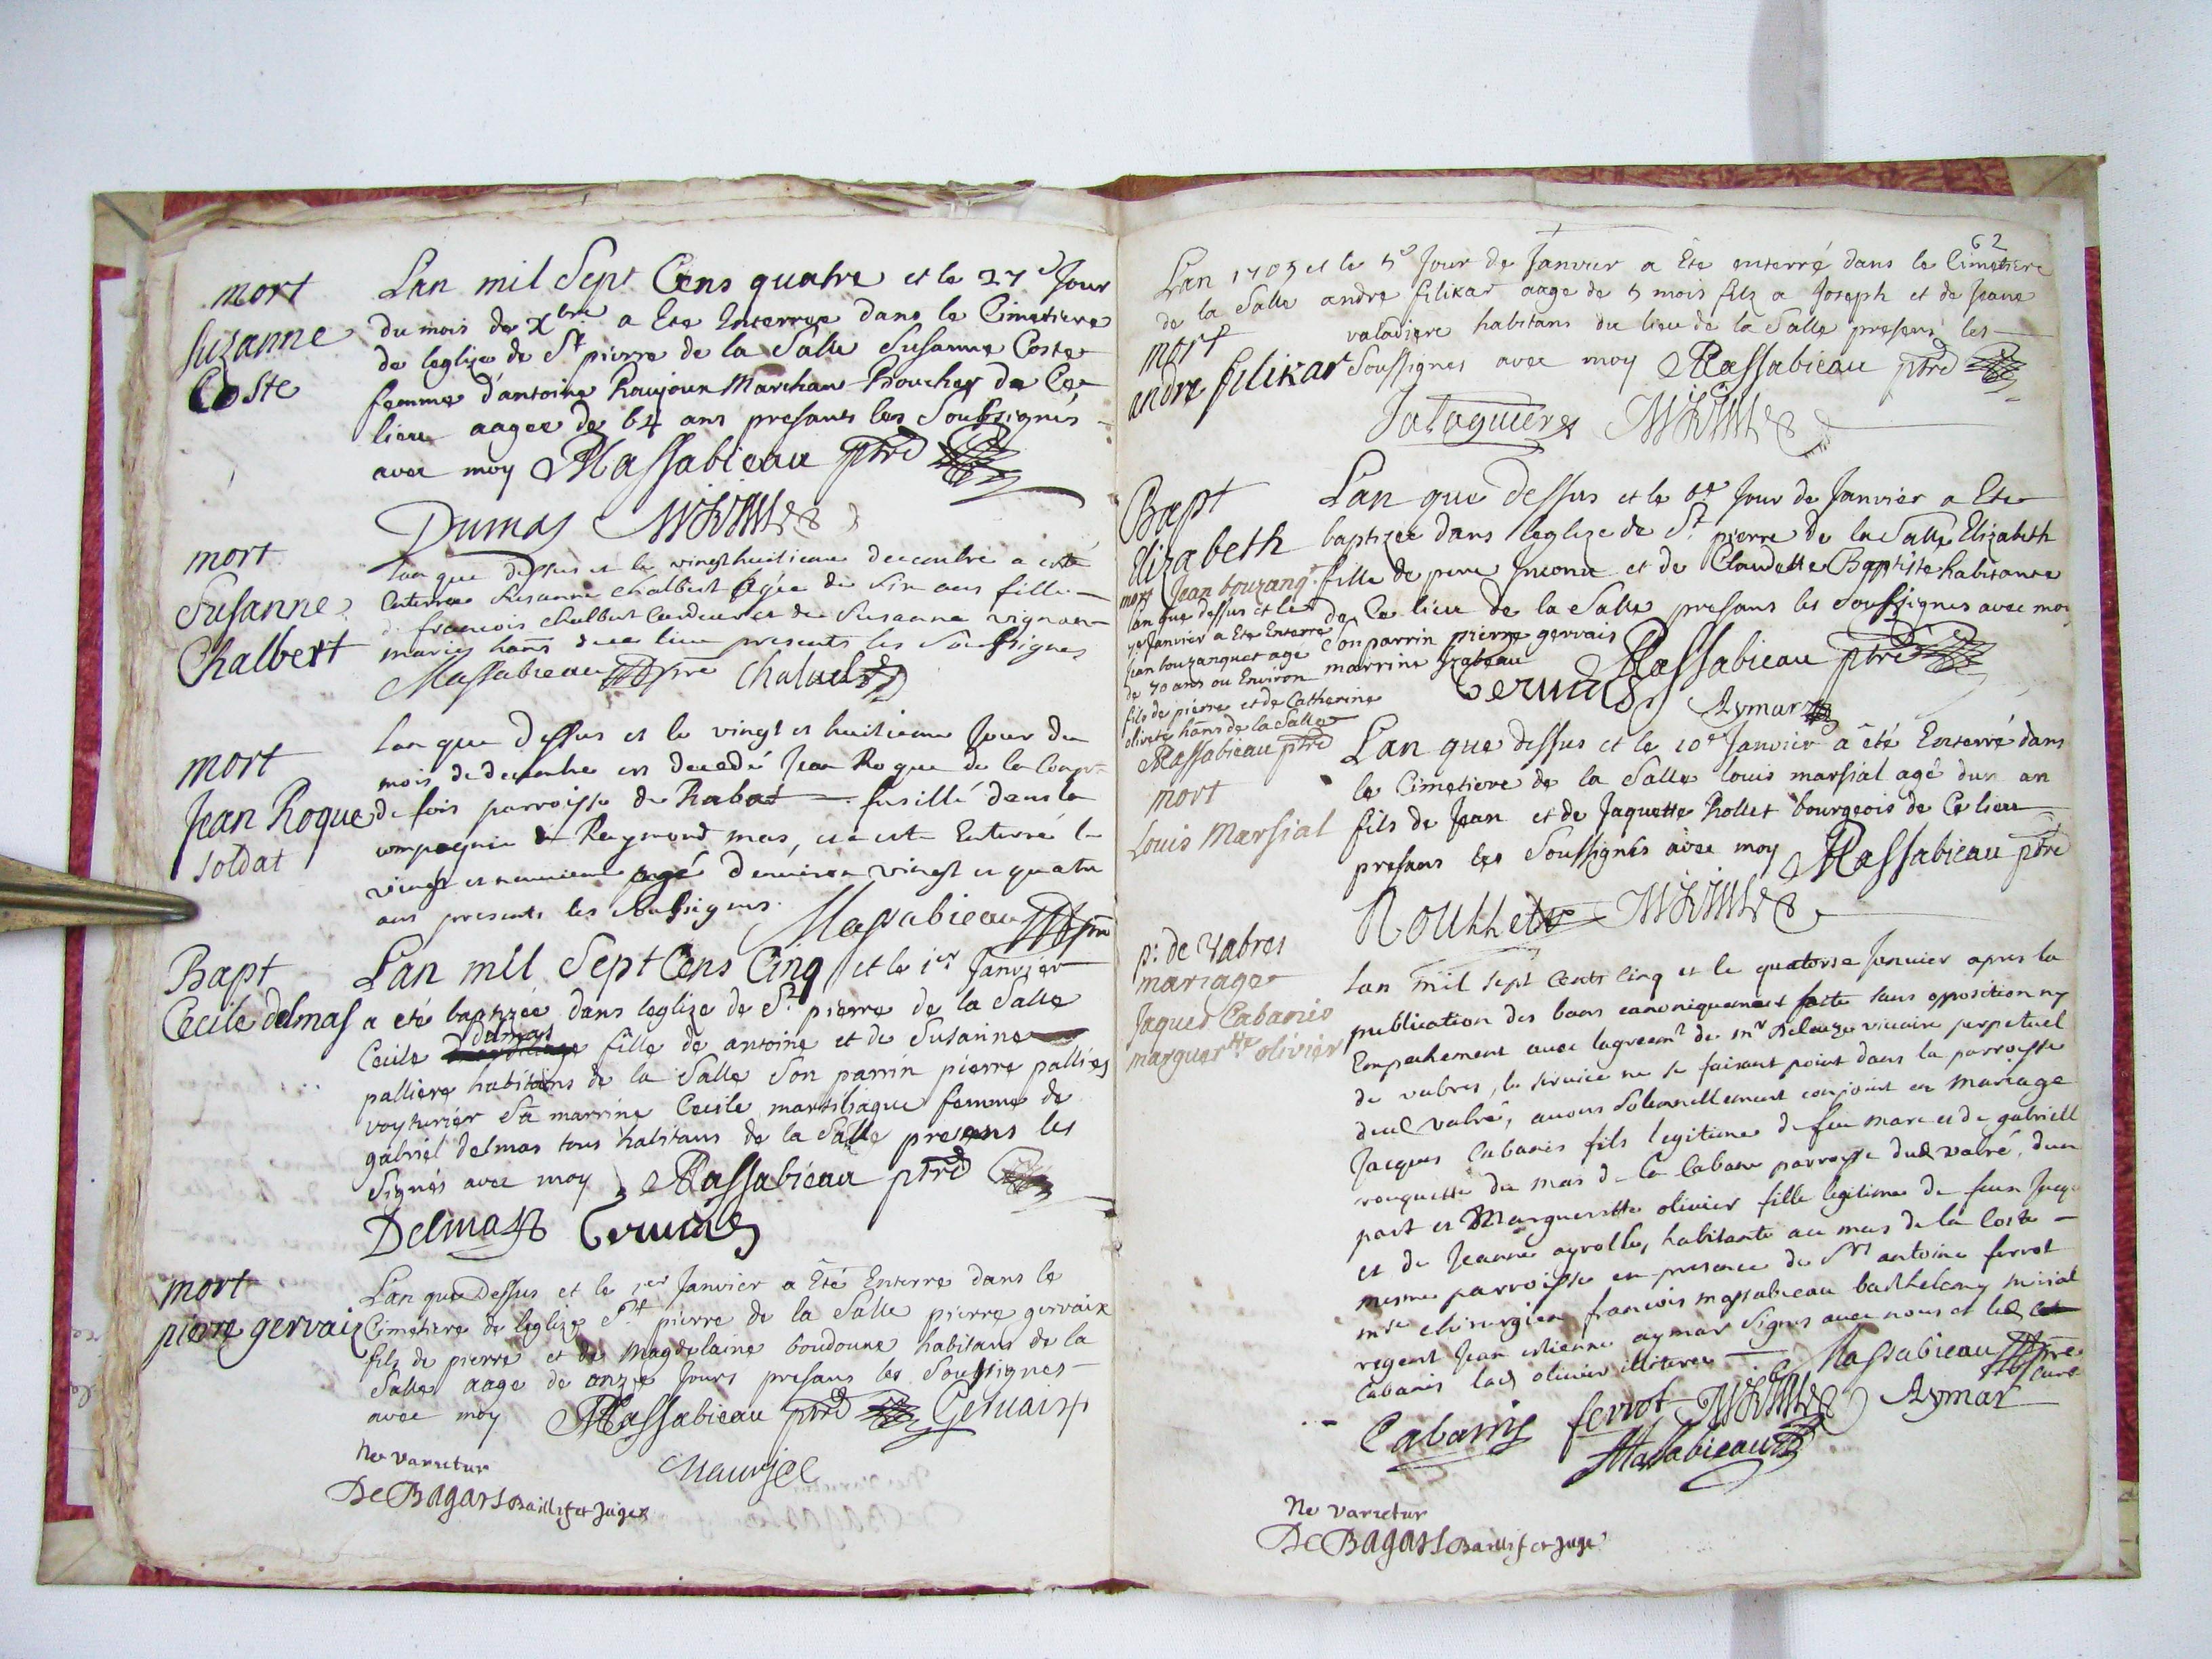 mort
Suzanne
Coste
Lan mil Sept Cens quatre et le 27e Jour
du mois de Xbre a Ete Enterree dans le Cimetiere
de leglize de St pierre de la Salle Susanne Coste
femme d'antoine Marchan de Ce
lieu aagee de 64 ans presants les Soubsignés
avec moy Massabieau ptre
Dumas
mort
Susanne
Chalbert
lan que dessus et le vingt huitieme decembre a esté
Enterree Susanne Chalbert agée de six ans fille
francois Chalbert et de Susanne
maries hans dece lieu presents les Soussignes
Massabieau ptre
mort
Jean Roque
soldat
lan que dessus et le vingt et huitieme Jour du
mois de decembre est decedé Jean Roque de la
de fois parroisse de Rabat fusillé dans la
compagnie de Raymond mas, et a esté Enterré le
vingt et neuvieme agé d'environ vingt et quatre
ans presents les soubsignes. Massabieau ptre
Bapt
Cecile delmas
Lan mil Sept Cens Cinq et le 1er Janvier
a eté baptizée dans leglize de St pierre de la Salle
Cecile delmas fille de antoine et de Susanne
palliere habitans de la Salle Son parrin pierre pallies
voyturier Sa marrine Cecile femme de
gabriel delmas tous habitans de la Salle presans les
Signés avec moy Massabieau ptre
Delmas
mort
pierre gervaix
Lan que Dessus et le 1er Janvier a Eté Enterre dans le
Cimetiere de leglize St pierre de la Salle pierre gervaix
fils de pierre et de Magdelaine boudoune habitans de la
Salle aage de onze Jours presans les Soussignes
avec moy Massabieau ptre Gervaix
Ne varietur
De Bagars Baillif et Juge
62
Lan 1705 et le 5e Jour de Janvier a Ete enterré dans le Cimetiere
de la Salle andre filikar aage de 5 mois filz a Joseph et de Jeane
valadiere habitans du lieu de la Salle presens les
mort
andre filikar
Soussignes avec moy Massabieau ptre
Bapt
Elizabeth
Lan que dessus et le 6e Jour de Janvier a Ete
baptizée dans leglize de St pierre de la Salle Elizabeth
fille de pere Inconu et de Claudette Baptiste habitante
de Ce lieu de la Salle presans les Soussignes avec moy
Son parrin pierre gervais
marrine Izabeau Massabieau ptre
Aymar
mort Jean bouzanqt
lan que dessus et le
7e Janvier a Ete Enterré
Jean bouzanquet age
de 70 ans ou Environ
fils de pierre et de Catherine
hans de la Salle
Massabieau ptre
mort
Louis Marsial
Lan que dessus et le 10e Janvier a été Enterré dans
le Cimetiere de la Salle louis marsial agé dun an
fils de Jean et de Jaquette Rollet bourgeois de Ce lieu
presans les Soussignés avec moy Massabieau ptre
p: de Vabres
mariage
Jaques Cabanis
marguerite olivier
Lan mil sept Cents Cinq et le quatorse Janvier apres la
publication des bans canoniquement faitte sans opposition ny
Empechement avec lagreemt de mr vicaire perpetuel
de vabres, le service ne se faisant point dans la parroisse
dud vabré, avons Solennellement conjoint en mariage
Jacques Cabanis fils legitime de feu marc et de gabriell
rouquette du mas de la Cabane parroisse dud vabré, dune
part et Marguerite olivier fille legitime de feu Jacq
et de Jeanne ayrolles, habitante au mas de la Coste
mesme parroisse en presence de Srs antoine ferrot
mre chirurgien francois massabieau barthelemy
regent Jean estienne aymar Signes avec nous et led
Cabanis lad olivier illiteree Massabieau ptre
Curé
Cabanis ferrot Aymar
Massabieau
Ne varietur
De Bagars Baillif et Juge